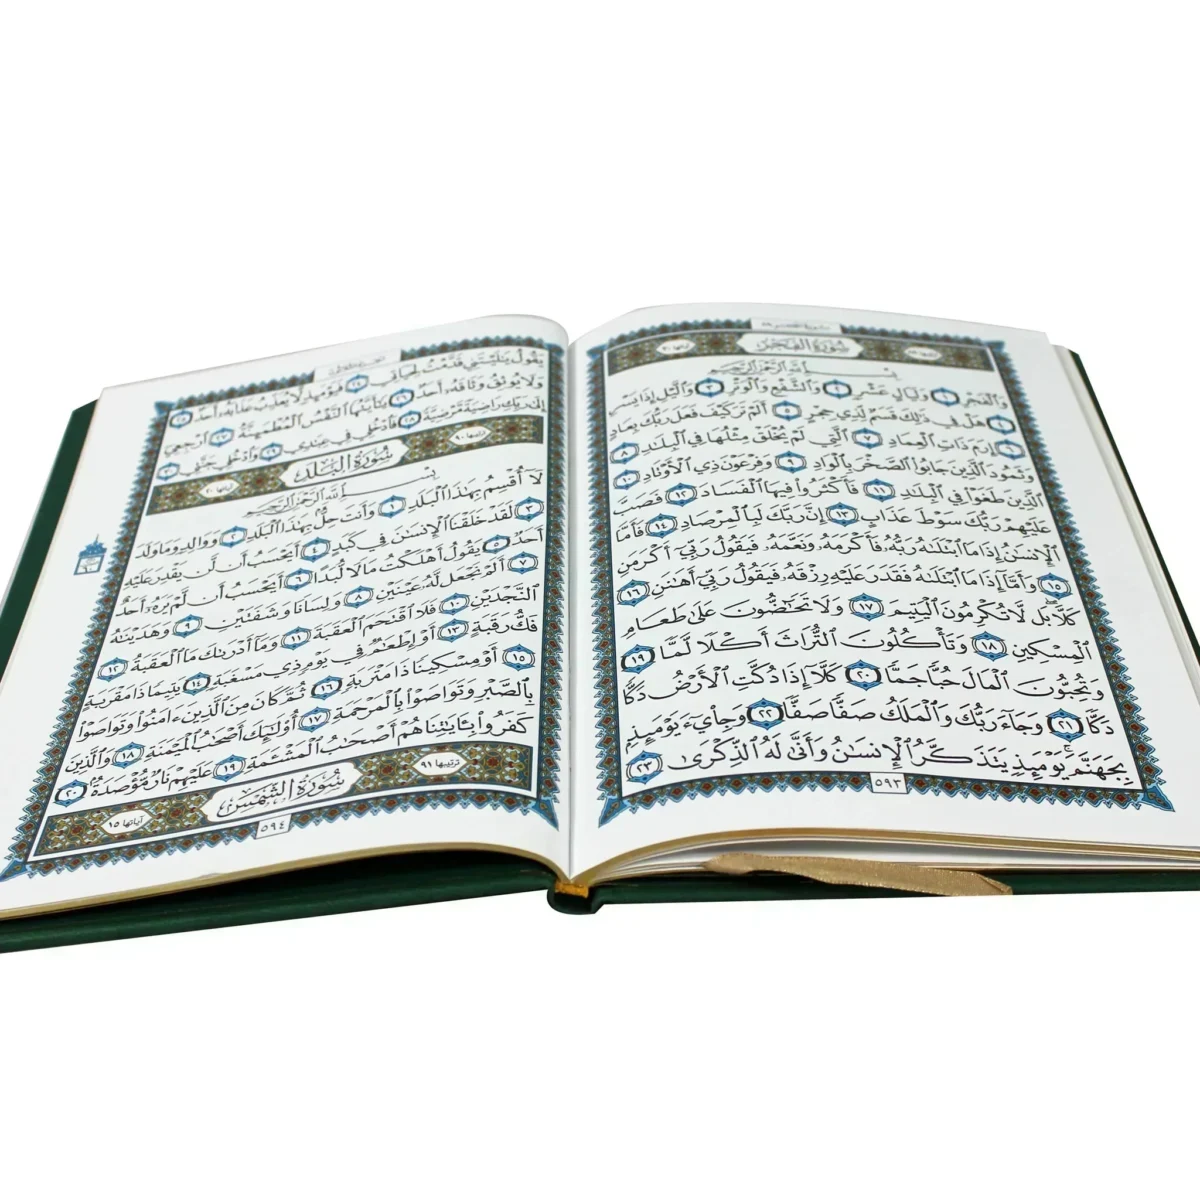 سورة الفجر
آياتها ٣٠
بسم الله الرحمن الرحيم
وَٱلْفَجْرِ ١ وَلَيَالٍ عَشْرٍ ٢ وَٱلشَّفْعِ وَٱلْوَتْرِ ٣ وَٱلَّيْلِ إِذَا يَسْرِ
٤ هَلْ فِي ذَٰلِكَ قَسَمٌ لِّذِي حِجْرٍ ٥ أَلَمْ تَرَ كَيْفَ فَعَلَ رَبُّكَ بِعَادٍ
٦ إِرَمَ ذَاتِ ٱلْعِمَادِ ٧ ٱلَّتِي لَمْ يُخْلَقْ مِثْلُهَا فِي ٱلْبِلَٰدِ ٨
وَثَمُودَ ٱلَّذِينَ جَابُوا۟ ٱلصَّخْرَ بِٱلْوَادِ ٩ وَفِرْعَوْنَ ذِي ٱلْأَوْتَادِ ١٠
ٱلَّذِينَ طَغَوْا۟ فِي ٱلْبِلَٰدِ ١١ فَأَكْثَرُوا۟ فِيهَا ٱلْفَسَادَ ١٢ فَصَبَّ
عَلَيْهِمْ رَبُّكَ سَوْطَ عَذَابٍ ١٣ إِنَّ رَبَّكَ لَبِٱلْمِرْصَادِ ١٤ فَأَمَّا
ٱلْإِنسَٰنُ إِذَا مَا ٱبْتَلَىٰهُ رَبُّهُۥ فَأَكْرَمَهُۥ وَنَعَّمَهُۥ فَيَقُولُ رَبِّيٓ أَكْرَمَنِ
١٥ وَأَمَّآ إِذَا مَا ٱبْتَلَىٰهُ فَقَدَرَ عَلَيْهِ رِزْقَهُۥ فَيَقُولُ رَبِّيٓ أَهَٰنَنِ ١٦
كَلَّا بَل لَّا تُكْرِمُونَ ٱلْيَتِيمَ ١٧ وَلَا تَحَٰٓضُّونَ عَلَىٰ طَعَامِ
ٱلْمِسْكِينِ ١٨ وَتَأْكُلُونَ ٱلتُّرَاثَ أَكْلًا لَّمًّا ١٩
وَتُحِبُّونَ ٱلْمَالَ حُبًّا جَمًّا ٢٠ كَلَّآ إِذَا دُكَّتِ ٱلْأَرْضُ دَكًّا
دَكًّا ٢١ وَجَآءَ رَبُّكَ وَٱلْمَلَكُ صَفًّا صَفًّا ٢٢ وَجِا۟يٓءَ يَوْمَئِذٍۭ
بِجَهَنَّمَ يَوْمَئِذٍ يَتَذَكَّرُ ٱلْإِنسَٰنُ وَأَنَّىٰ لَهُ ٱلذِّكْرَىٰ ٢٣
٥٩٣
يَقُولُ يَٰلَيْتَنِي قَدَّمْتُ لِحَيَاتِي ٢٤ فَيَوْمَئِذٍ لَّا يُعَذِّبُ عَذَابَهُۥٓ أَحَدٌ ٢٥
وَلَا يُوثِقُ وَثَاقَهُۥٓ أَحَدٌ ٢٦ يَٰٓأَيَّتُهَا ٱلنَّفْسُ ٱلْمُطْمَئِنَّةُ ٢٧ ٱرْجِعِيٓ
إِلَىٰ رَبِّكِ رَاضِيَةً مَّرْضِيَّةً ٢٨ فَٱدْخُلِي فِي عِبَٰدِي ٢٩ وَٱدْخُلِي جَنَّتِي ٣٠
ترتيبها ٩٠ سورة البلد آياتها ٢٠
بسم الله الرحمن الرحيم
لَآ أُقْسِمُ بِهَٰذَا ٱلْبَلَدِ ١ وَأَنتَ حِلٌّۢ بِهَٰذَا ٱلْبَلَدِ ٢ وَوَالِدٍ وَمَا وَلَدَ
٣ لَقَدْ خَلَقْنَا ٱلْإِنسَٰنَ فِي كَبَدٍ ٤ أَيَحْسَبُ أَن لَّن يَقْدِرَ عَلَيْهِ
أَحَدٌ ٥ يَقُولُ أَهْلَكْتُ مَالًا لُّبَدًا ٦ أَيَحْسَبُ أَن لَّمْ يَرَهُۥٓ أَحَدٌ
٧ أَلَمْ نَجْعَل لَّهُۥ عَيْنَيْنِ ٨ وَلِسَانًا وَشَفَتَيْنِ ٩ وَهَدَيْنَٰهُ
ٱلنَّجْدَيْنِ ١٠ فَلَا ٱقْتَحَمَ ٱلْعَقَبَةَ ١١ وَمَآ أَدْرَىٰكَ مَا ٱلْعَقَبَةُ ١٢
فَكُّ رَقَبَةٍ ١٣ أَوْ إِطْعَٰمٌ فِي يَوْمٍ ذِي مَسْغَبَةٍ ١٤ يَتِيمًا ذَا مَقْرَبَةٍ
١٥ أَوْ مِسْكِينًا ذَا مَتْرَبَةٍ ١٦ ثُمَّ كَانَ مِنَ ٱلَّذِينَ ءَامَنُوا۟ وَتَوَاصَوْا۟
بِٱلصَّبْرِ وَتَوَاصَوْا۟ بِٱلْمَرْحَمَةِ ١٧ أُو۟لَٰٓئِكَ أَصْحَٰبُ ٱلْمَيْمَنَةِ ١٨ وَٱلَّذِينَ
كَفَرُوا۟ بِـَٔايَٰتِنَا هُمْ أَصْحَٰبُ ٱلْمَشْـَٔمَةِ ١٩ عَلَيْهِمْ نَارٌ مُّؤْصَدَةٌۢ ٢٠
ترتيبها ٩١ سورة الشمس آياتها ١٥
٥٩٤